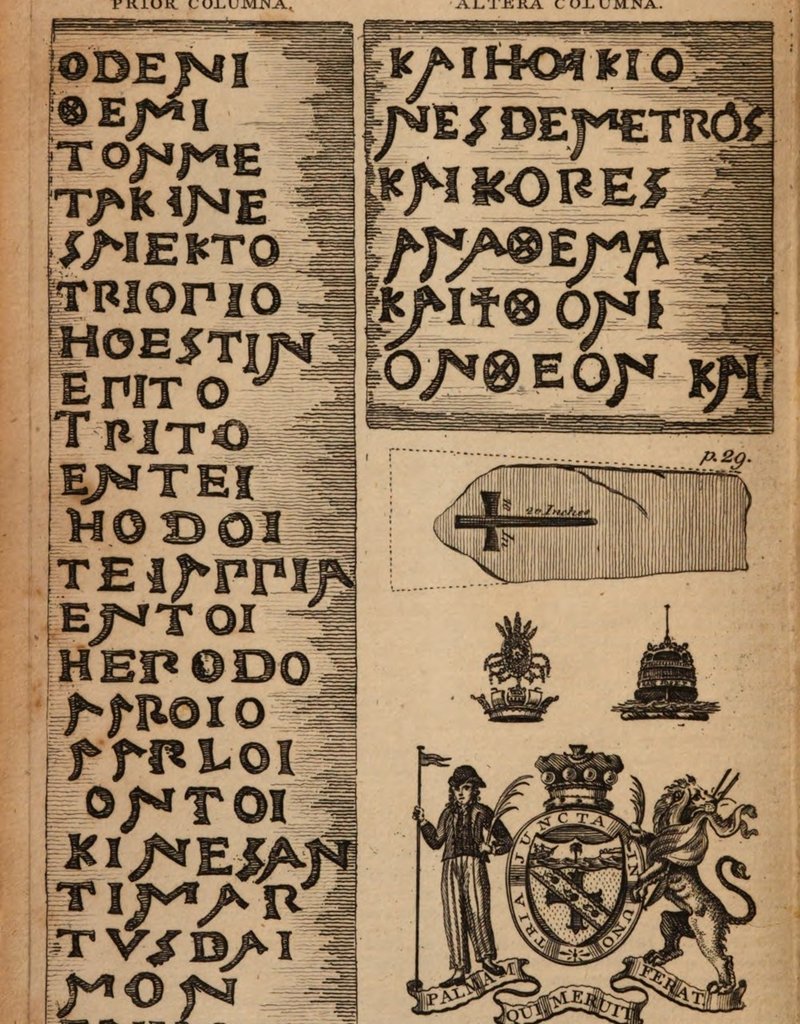 PRIOR COLUMNA.
ODENI
ΘEMI
TONME
TAKINE
SAIEKTO
TRIOΠIO
HOESTIN
EΠITO
TRITO
ENTEI
HODOI
TEIAΠΠIA
ENTOI
HERODO
AΓROIO
ΓARLOI
ONTOI
KINESAN
TIMAR
TVSDAI
MON
ALTERA COLUMNA.
KAIHOIKIO
NESDEMETROS
KAIKORES
ANAΘEMA
KAI†ΘONI
ONΘEON KAI
p. 29.
20 Inches
TRIA JUNCTA IN UNO
PALMAM QUI MERUIT FERAT